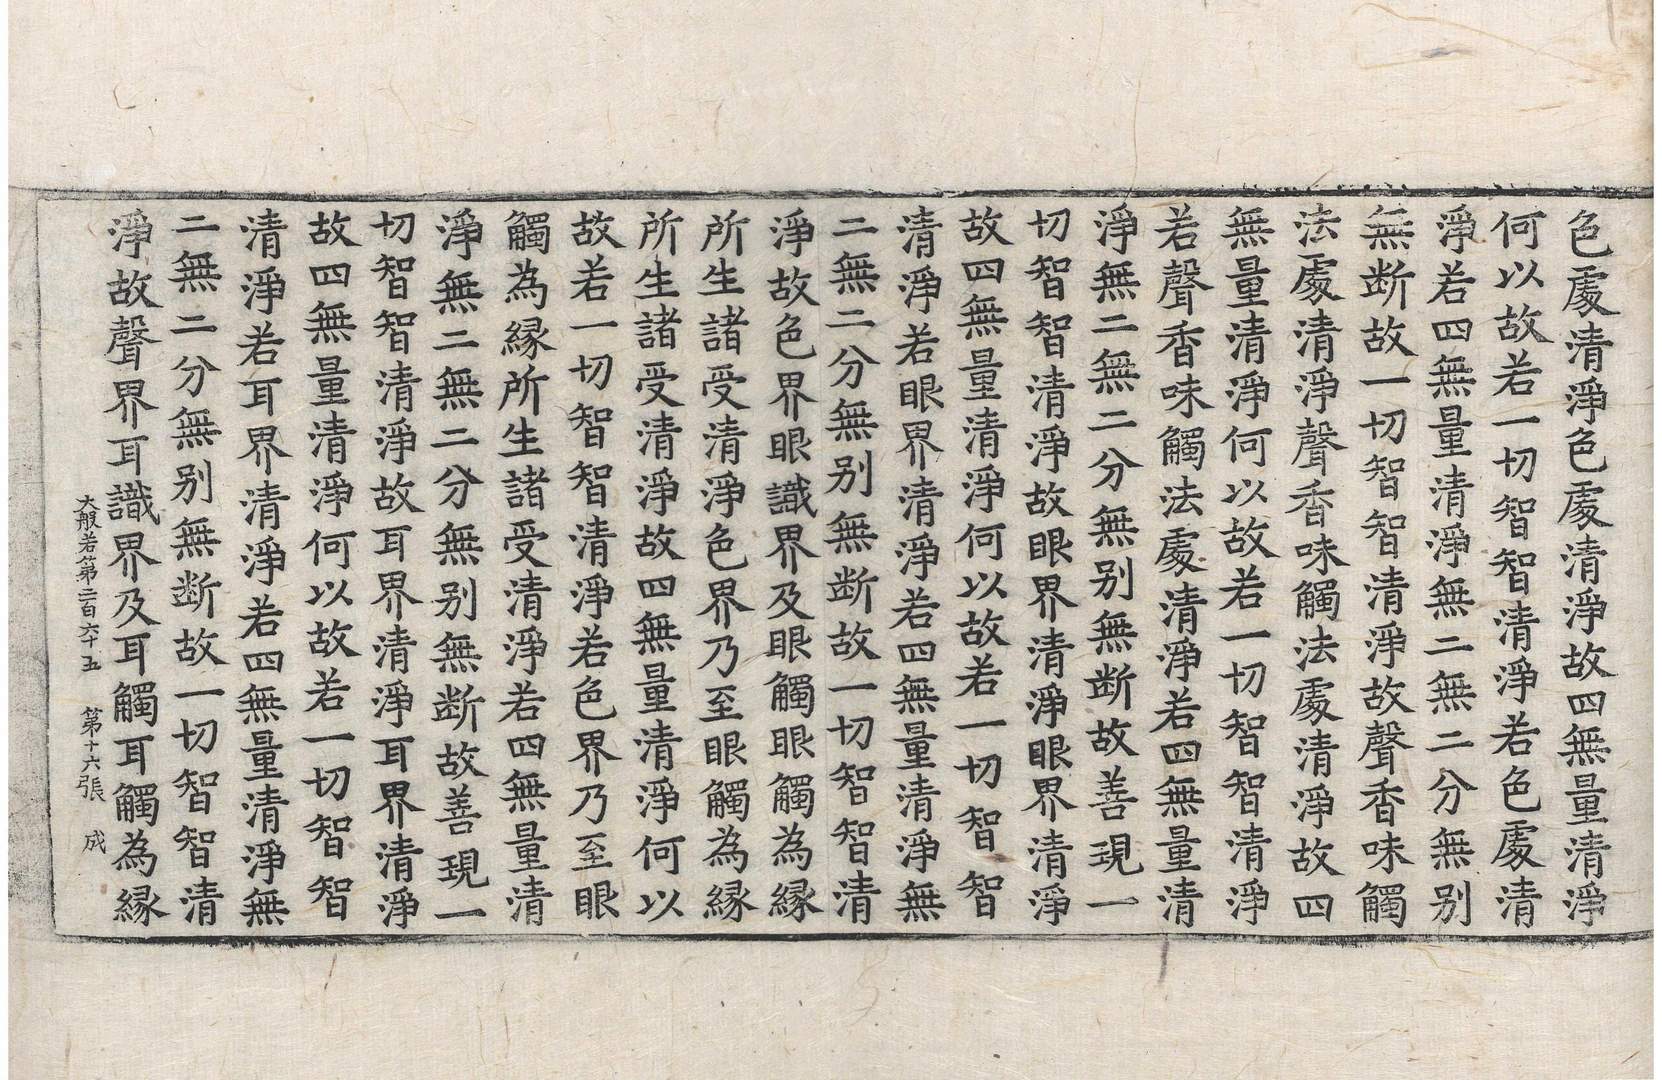 色處清淨色處清淨故四無量清淨
何以故若一切智智清淨若色處清
淨若四無量清淨無二無二分無别
無断故一切智智清淨故聲香味觸
法處清淨聲香味觸法處清淨故四
無量清淨何以故若一切智智清淨
若聲香味觸法處清淨若四無量清
淨無二無二分無别無断故善現一
切智智清淨故眼界清淨眼界清淨
故四無量清淨何以故若一切智智
清淨若眼界清淨若四無量清淨無
二無二分無别無断故一切智智清
淨故色界眼識界及眼觸眼觸為縁
所生諸受清淨色界乃至眼觸為縁
所生諸受清淨故四無量清淨何以
故若一切智智清淨若色界乃至眼
觸為縁所生諸受清淨若四無量清
淨無二無二分無别無断故善現一
切智智清淨故耳界清淨耳界清淨
故四無量清淨何以故若一切智智
清淨若耳界清淨若四無量清淨無
二無二分無别無断故一切智智清
淨故聲界耳識界及耳觸耳觸為縁
大般若第二百六十五 第十六張 成